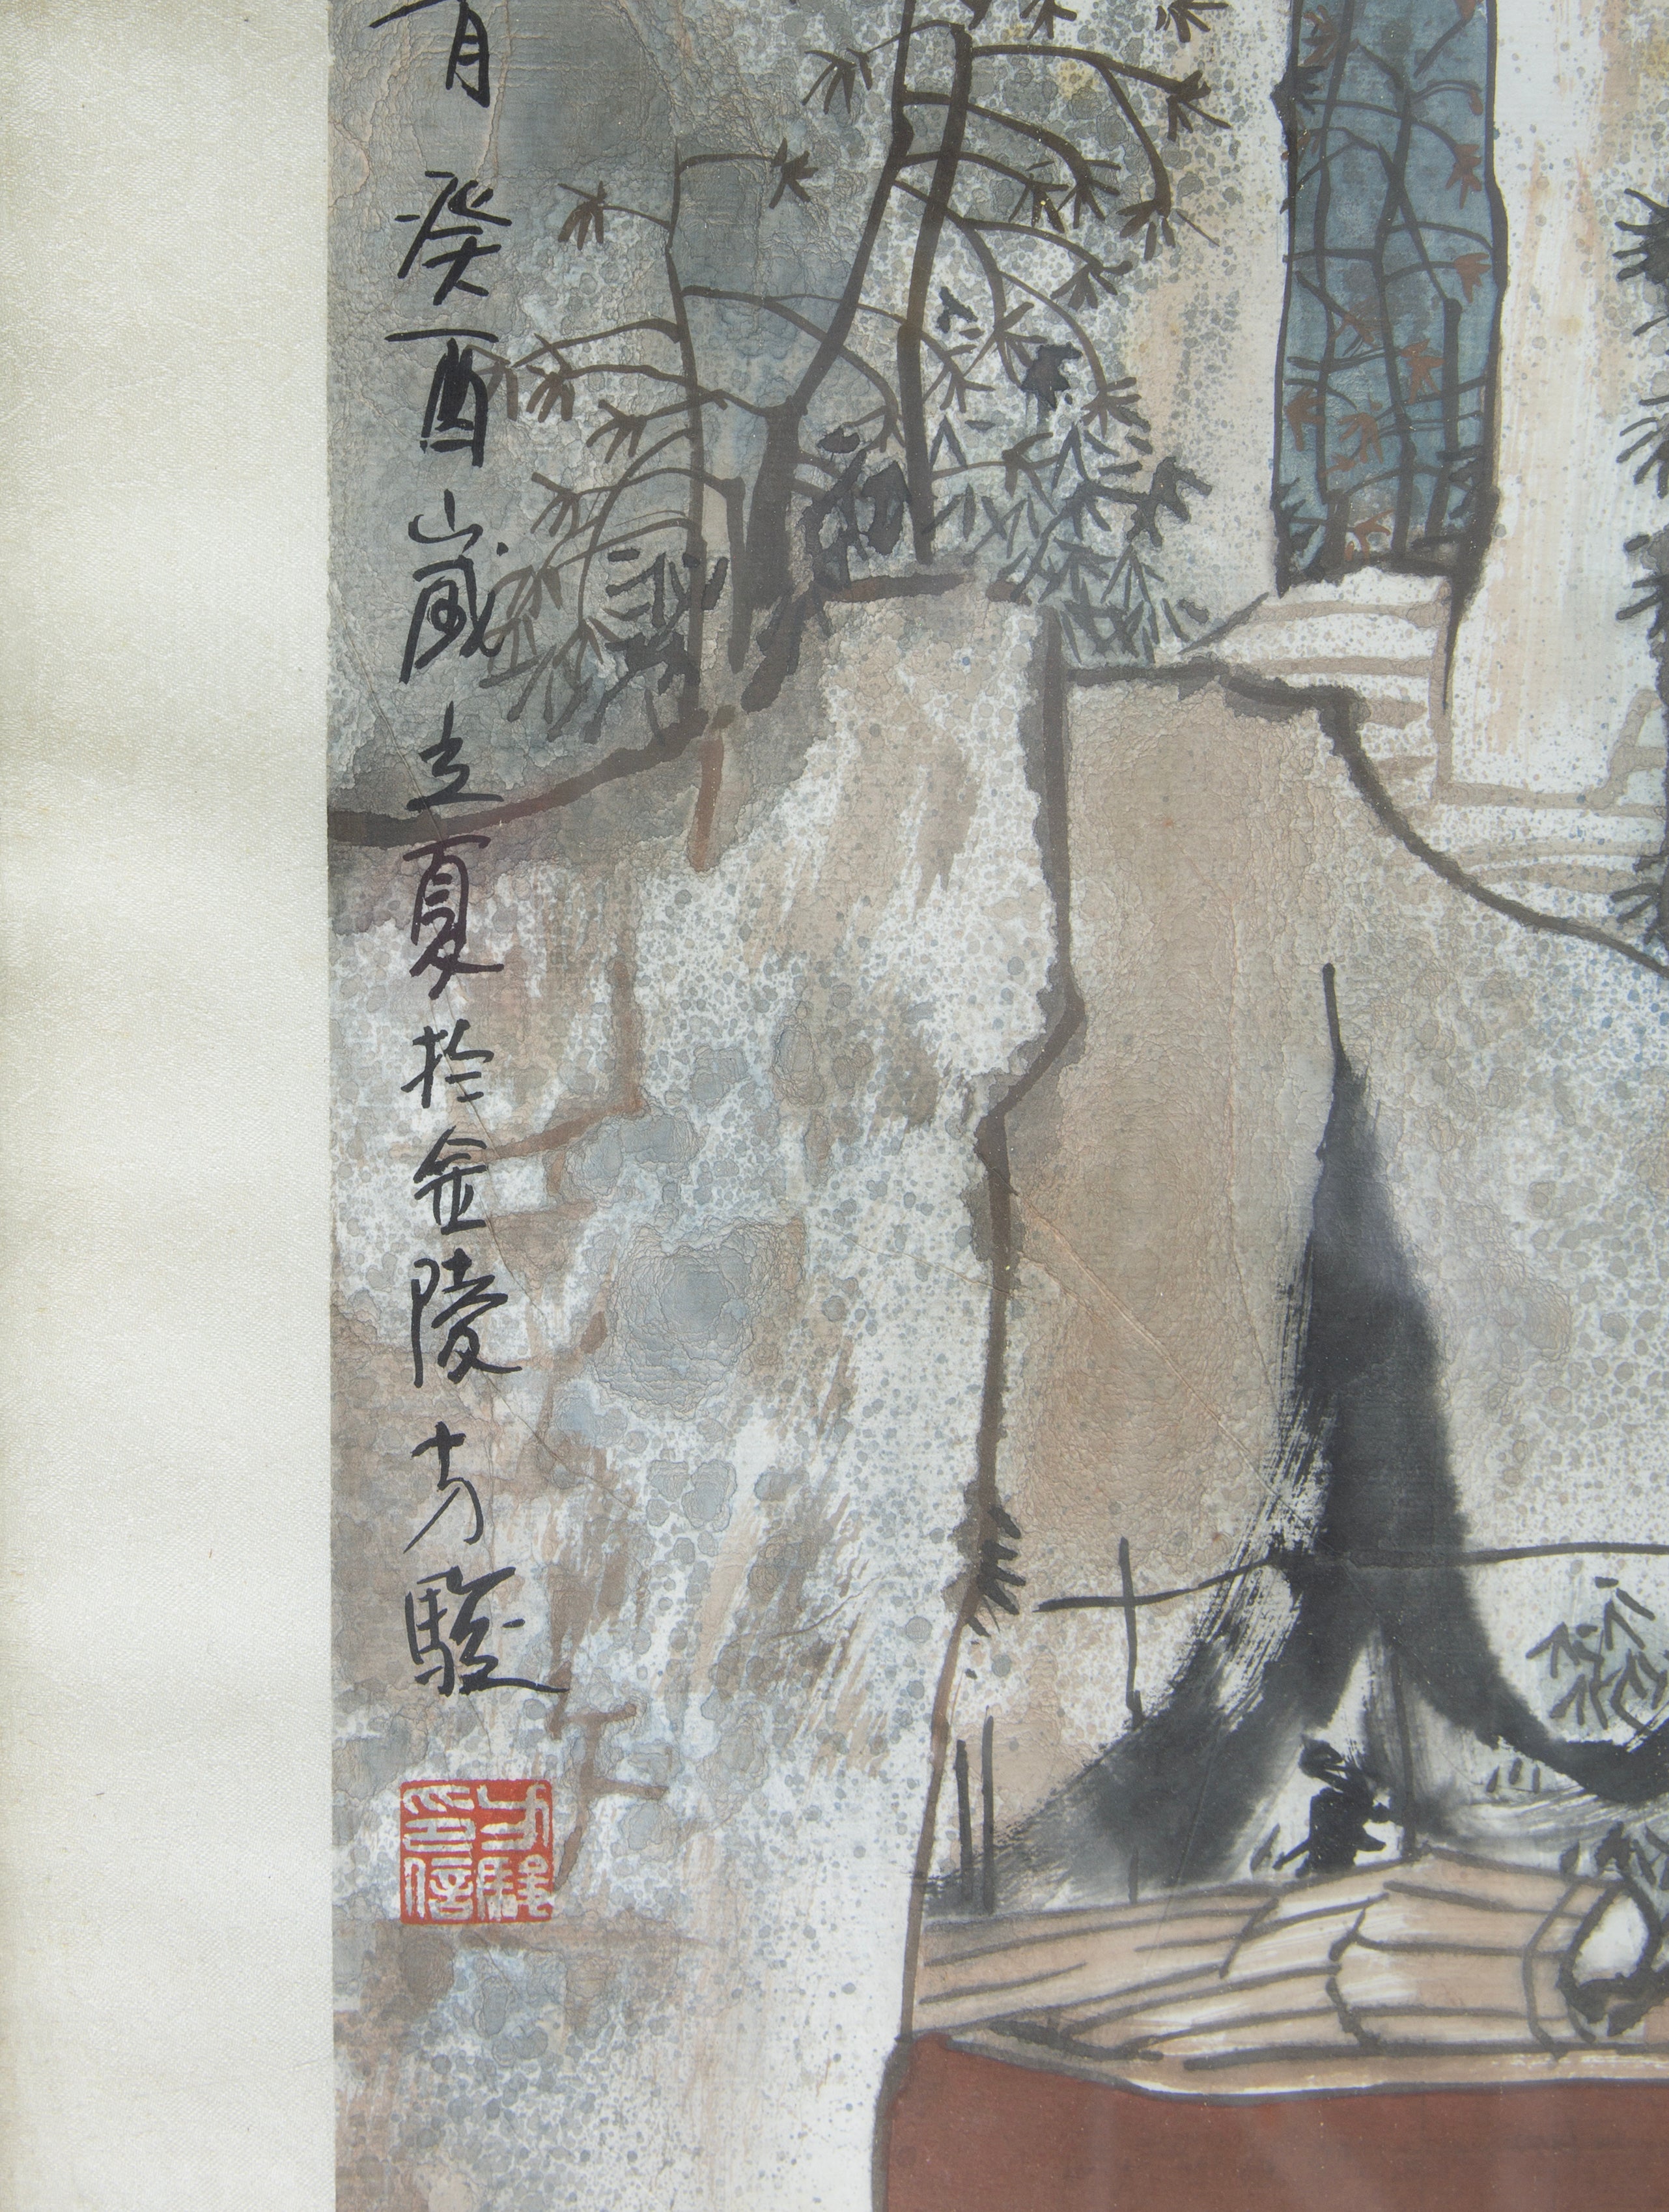 有癸酉歲立夏於金陵方駿
方駿
印信